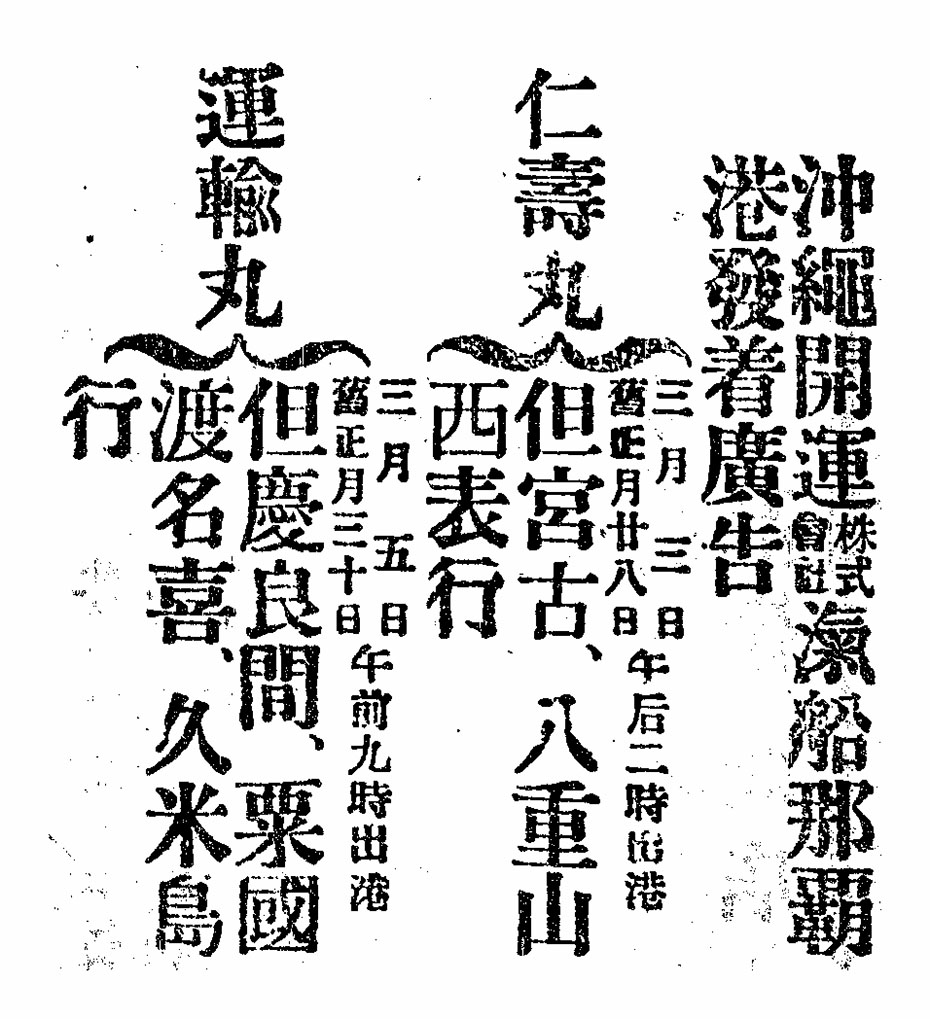 沖繩開運株式會社滊船那覇
港發着廣告
仁壽丸
三月三日
舊正月廿八日
午后二時出港
但宮古、八重山
西表行
運輸丸
三月五日
舊正月三十日
午前九時出港
但慶良間、粟國
渡名喜、久米島
行